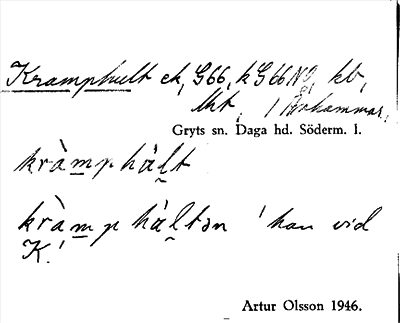 Kramphult ek, G66, k G66 NO, kb,
lht, / Åkhammar,
Gryts sn. Daga hd. Söderm. l.
kràmphàlt
kràmp hàltən 'han vid
K.'
Artur Olsson 1946.